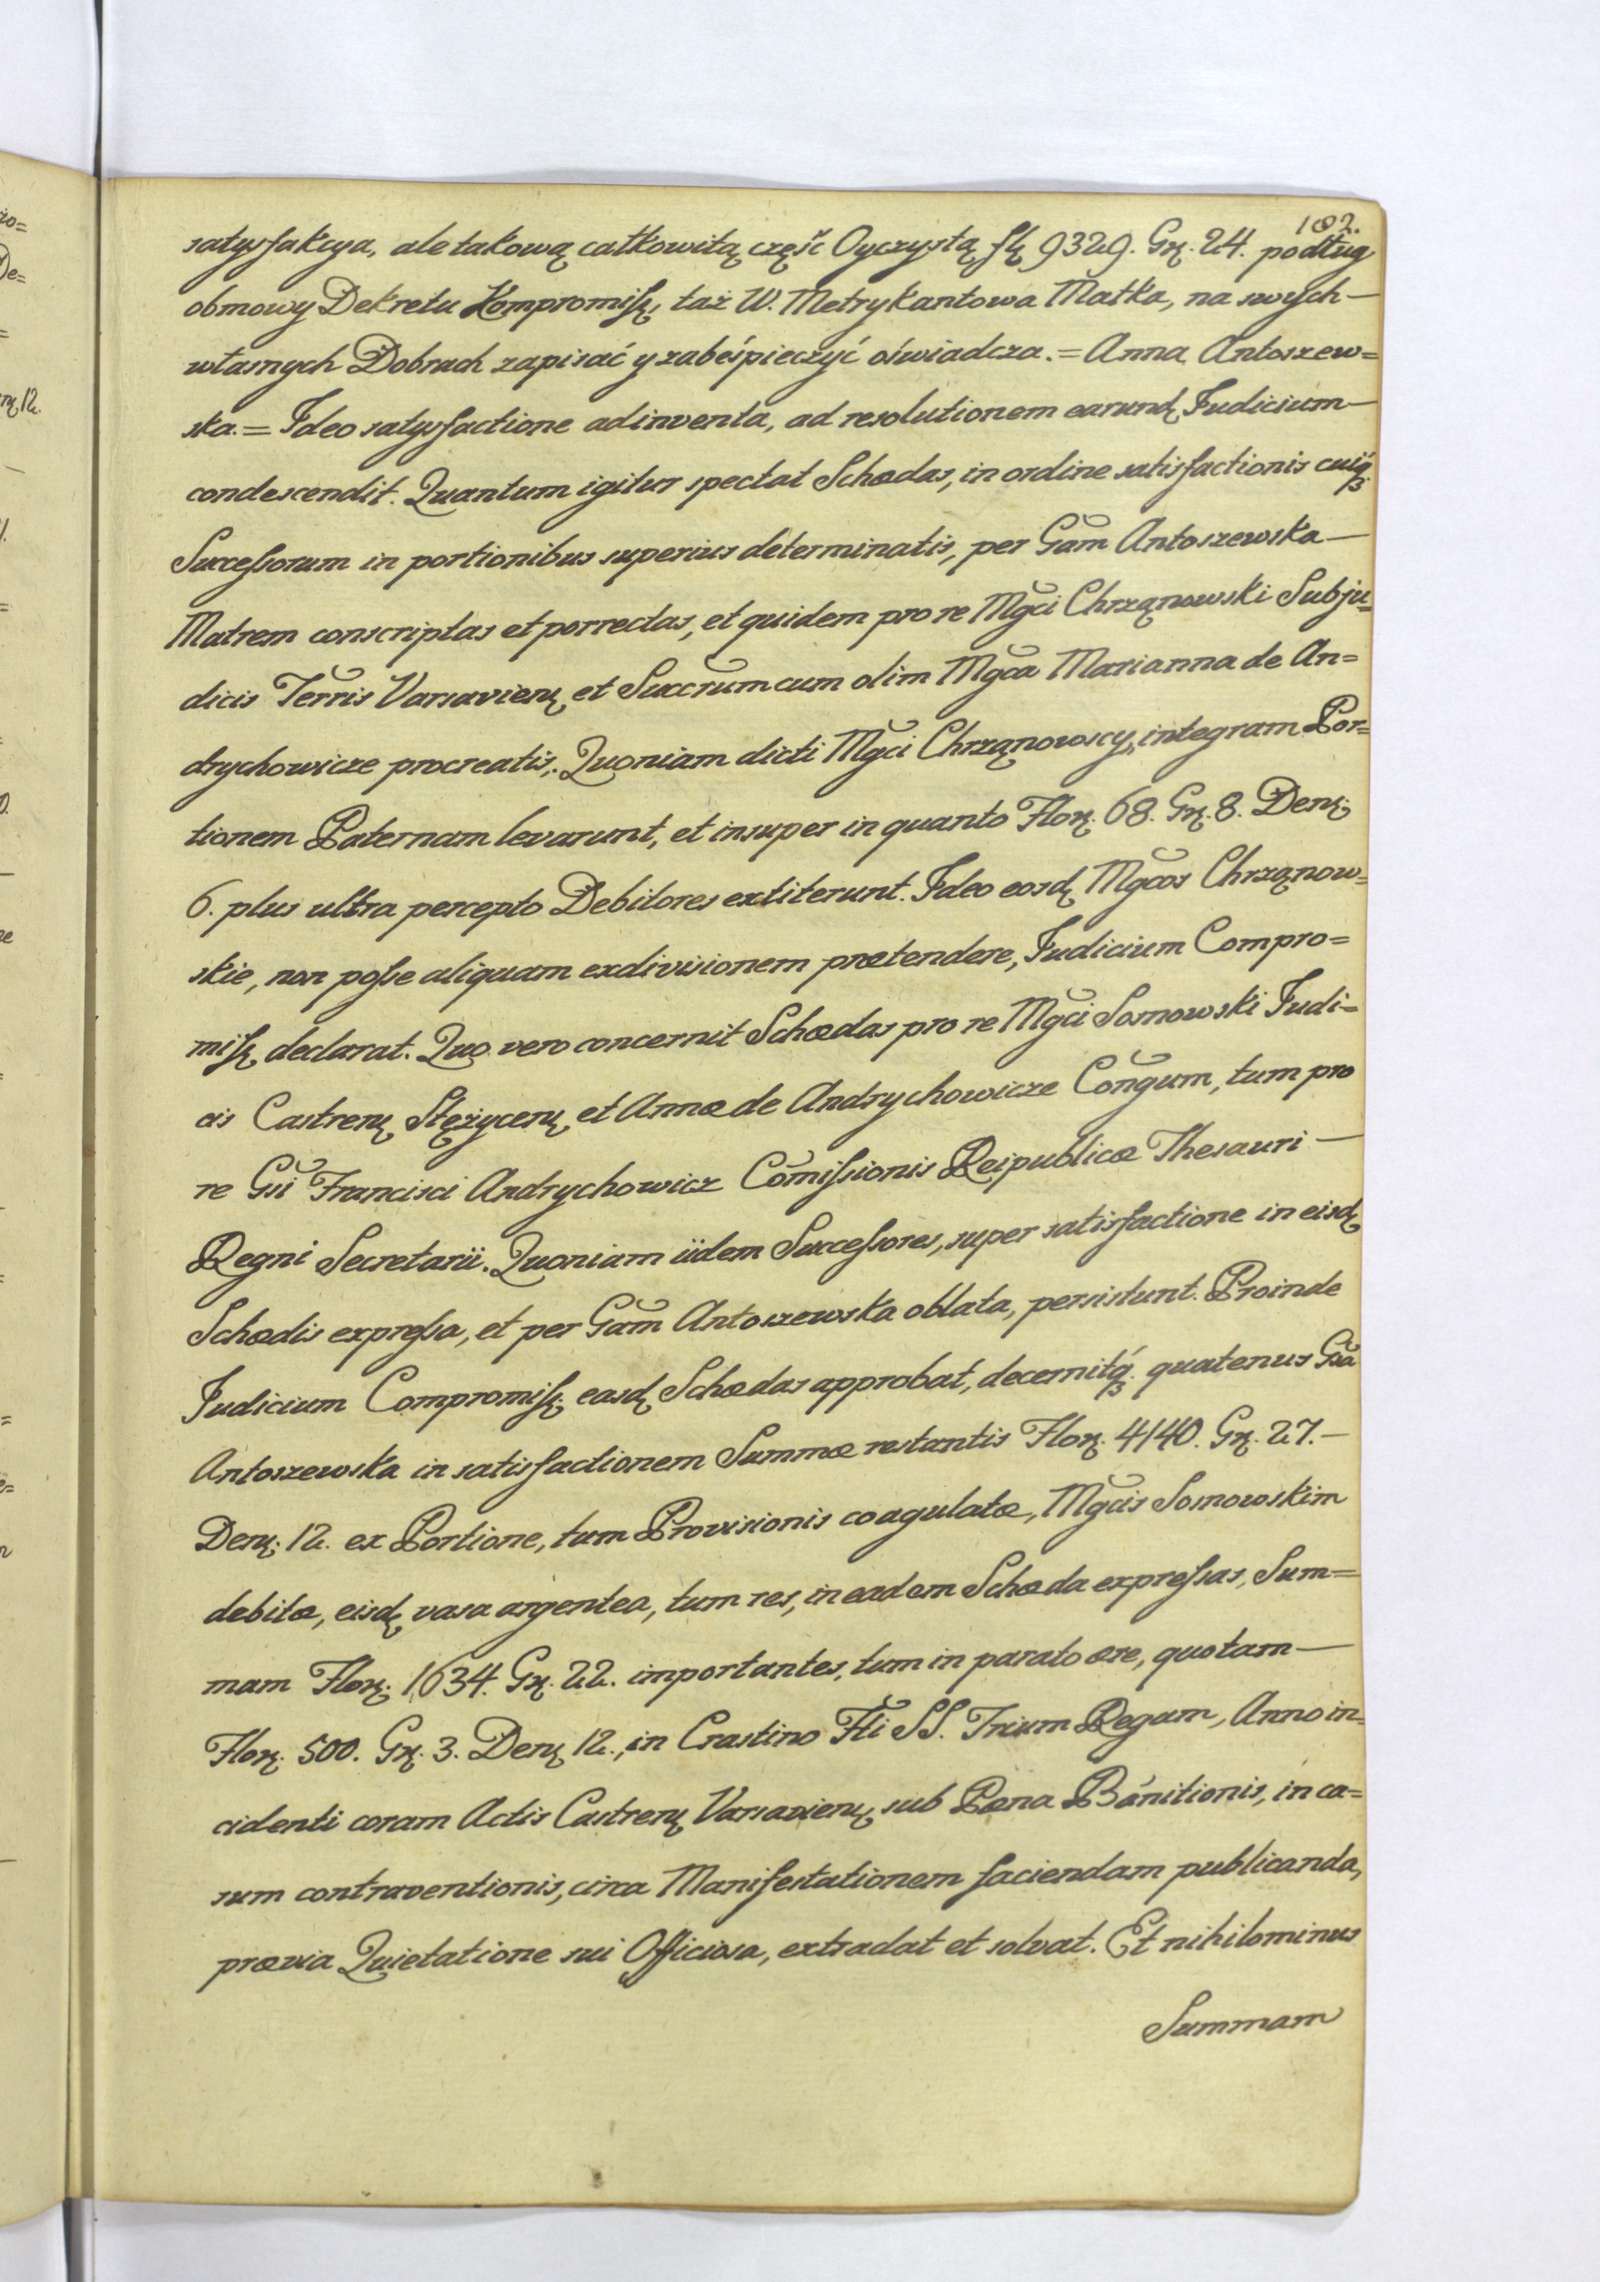 182.
satysfakcya, ale takową całkowitą część Oyczystą fł 9329. Gr. 24. podług
obmowy Dekretu Kompromiss, taż W. Metrykantowa Matka, na swych —
własnych Dobrach zapisać y zabeśpieczyć oświadcza. = Anna Antoszew=
ska. = Ideo satysfactione adinventa, ad resolutionem earund Judicium —
condescendit. Quantum igitur spectat Schedas, in ordine satisfactionis cuiq
Successorum in portionibus superius determinatis, per Gam Antoszewska —
Matrem conscriptas et porrectas, et quidem pro re Mgci Chrząnowski Subju=
dicis Terris Varsaviens et Succrum cum olim Mgca Marianna de An=
drychowicze procreatis, Quoniam dicti Mgci Chrząnowscy, integram Por=
tionem Paternam levarunt, et insuper in quanto Flor. 68. Gr. 8. Den.
6. plus ultra percepto Debitores extiterunt. Ideo eosd Mgcos Chrząnow=
skie, non posse aliquam exdivisionem prætendere, Judicium Compro=
miss declarat. Quo vero concernit Schedas pro re Mgci Sosnowski Judi=
cis Castren Stężycen et Annæ de Andrychowicze Congum, tum pro
re Gsi Francisci Andrychowicz Comissionis Reipublicæ Thesauri —
Regni Secretarii. Quoniam iidem Successores, super satisfactione in eisd
Schedis expressa, et per Gam Antoszewska oblata, persistunt. Proinde
Judicium Compromiss. easd Schedas approbat, decernitq. quatenus Gsa
Antoszewska in satisfactionem Summæ restantis Flor. 4140. Gr. 27. —
Den. 12. ex Portione, tum Provisionis coagulatæ, Mgcis Sosnowskim
debitæ, eisd vasa argentea, tum res, in eadem Scheda expressas, Sum=
mam Flor. 1634. Gr. 22. importantes, tum in parato ære, quotam —
Flor. 500. Gr. 3. Den 12., in Crastino Fti SS. Trium Regum, Anno in=
cidenti coram Actis Castren Varsavien sub Pæna Banitionis, in ca=
sum contraventionis, circa Manifestationem faciendam publicanda,
prævia Quietatione sui Officiosa, extradat et solvat. Et nihilominus
Summam